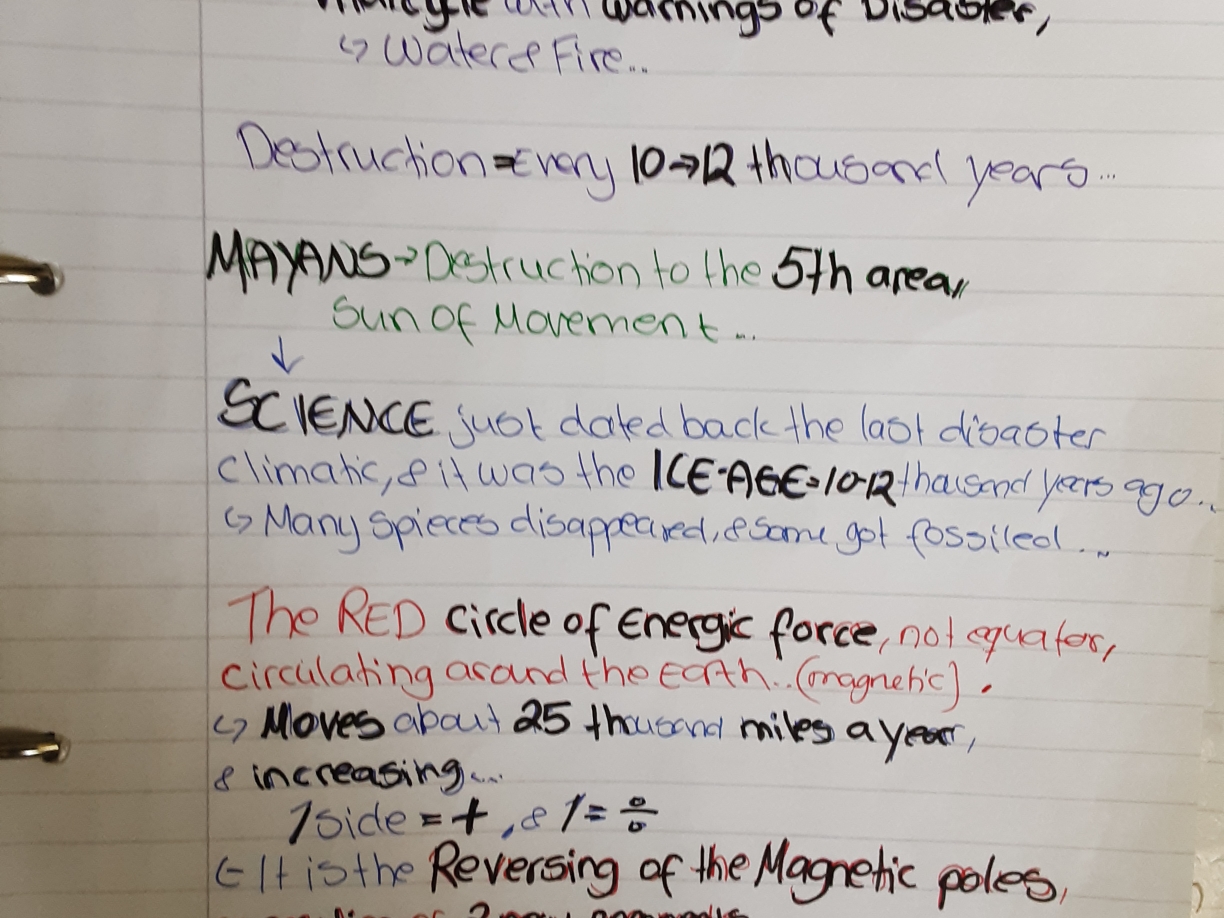 with warnings of Disaster,
↳ Water & Fire...
Destruction = Every 10→12 thousand years...
MAYANS → Destruction to the 5th area,,
Sun of Movement...
↓
SCIENCE just dated back the last disaster
climatic, & it was the ICE-AGE = 10-12 thousand years ago...
↳ Many spieces disappeared, & some got fossiled...
The RED circle of Energic force, not equator,
circulating around the Earth.. (magnetic).
↳ Moves about 25 thousand miles a year,
& increasing...
1 side = +, & 1 = ÷
↳ It is the Reversing of the Magnetic poles,